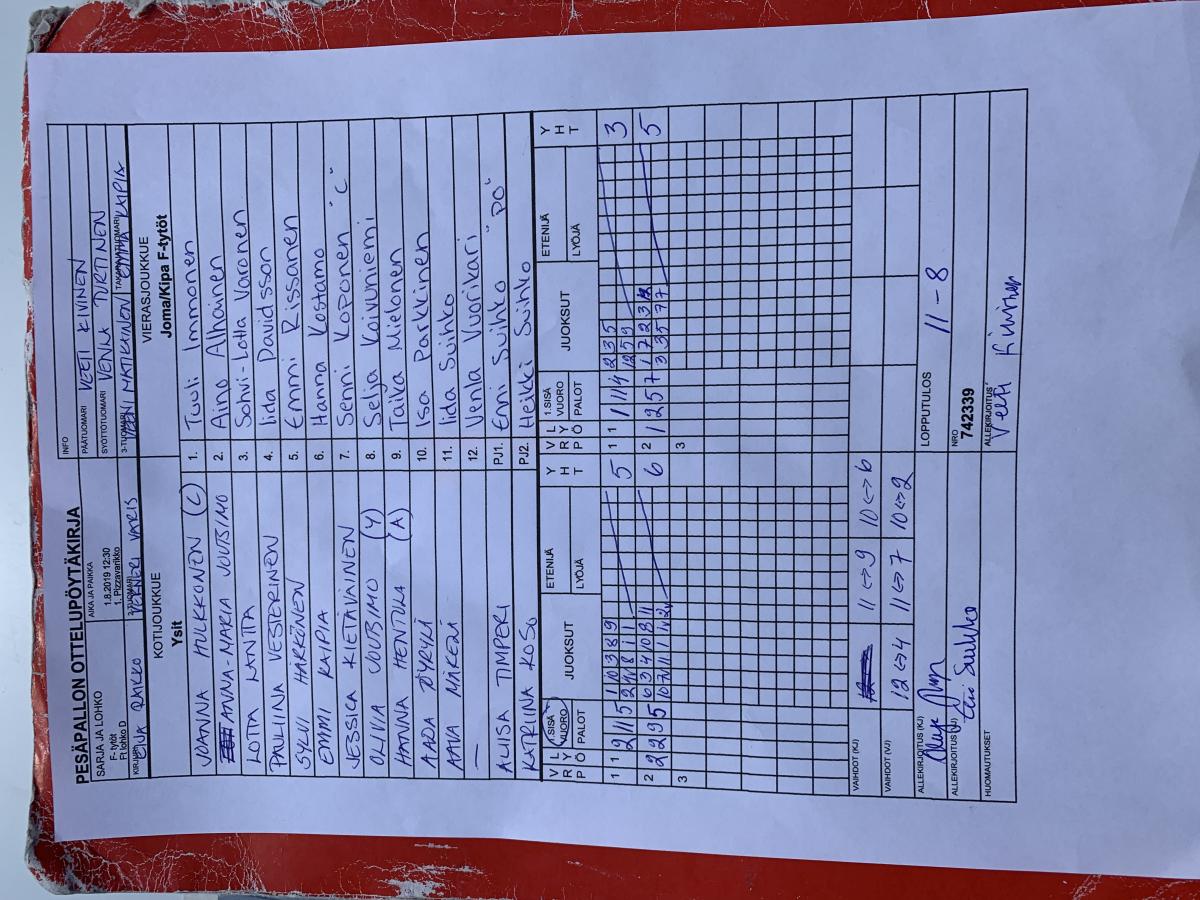 PESÄPALLON OTTELUPÖYTÄKIRJA
SARJA JA LOHKO
F- tytöt
F: lohko D
AIKA JA PAIKKA
1.8.2019 12:30
1. Pizzavarikko
INFO
PÄÄTUOMARI VEETI KIVINEN
SYÖTTÖTUOMARI VENLA TURTINEN
KIRJURI EIJA RAIKKO
2-TUOMARI VERNERI VARIS
3-TUOMARI VEENI MATIKAINEN
TAKARAJATUOMARI EMMA KAIPIA
KOTIJOUKKUE
Ysit
VIERASJOUKKUE
Joma/Kipa F-tytöt
JOANNA HULKKONEN (C) 1. Tuuli Immonen
ANNA-MARIA JOUTSIMO 2. Aino Alhainen
LOTTA LANTTA 3. Sohvi-Lotta Varonen
PAULIINA VESTERINEN 4. Iida Davidsson
SYLVI HÄRKÖNEN 5. Emmi Rissanen
EMMI KAIPIA 6. Hanna Kostamo
JESSICA KIETÄVÄINEN 7. Senni Koponen "C"
OLIVIA JOUTSIMO (Y) 8. Selja Koivuniemi
HANNA HENTULA (A) 9. Taika Mielonen
AADA 10. Isa Parkkinen
AAVA MÄKELÄ 11. Iida Suihko
— 12. Venla Vuorikari
ALIISA TIMPERI PJ1. Enni Suihko "PO"
KATRIINA PJ2. Heikki Suihko
V R P L Y Ö 1.SISÄ VUORO PALOT JUOKSUT ETENIJÄ LYÖJÄ Y H T
V R P L Y Ö 1.SISÄ VUORO PALOT JUOKSUT ETENIJÄ LYÖJÄ Y H T
1 1 2 11 5 1 10 3 8 9 5
1 1 1 11 4 2 3 5 3
12 5 9
2 2 2 9 5 6 3 4 10 8 11 6
2 1 2 5 7 1 7 2 3 4 5
3 3 5 7 7
3
3
VAIHDOT (KJ) 11<->9 10<->6
VAIHDOT (VJ) 12<->4 11<->7 10<->2
ALLEKIRJOITUS (KJ)
ALLEKIRJOITUS (VJ) Enni Suihko
LOPPUTULOS 11-8
NRO
742339
HUOMAUTUKSET
ALLEKIRJOITUS
Veeti Kivinen